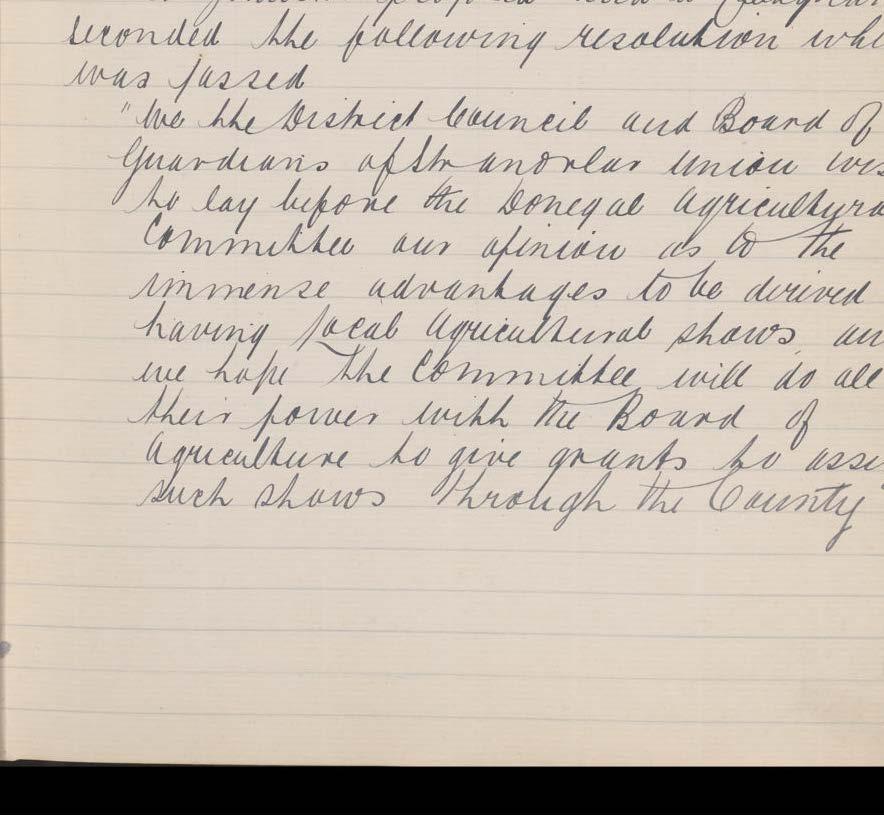 seconded the following resolution whi
was passed
"We the District Council and Board of
Guardians of Stranorlar Union wis
to lay before the Donegal Agricultura
Committee our opinion as to the
immense advantages to be derived
having local Agricultural shows an
we hope the Committee will do all
their power with the Board of
Agriculture to give grants to assi
such shows through the County"